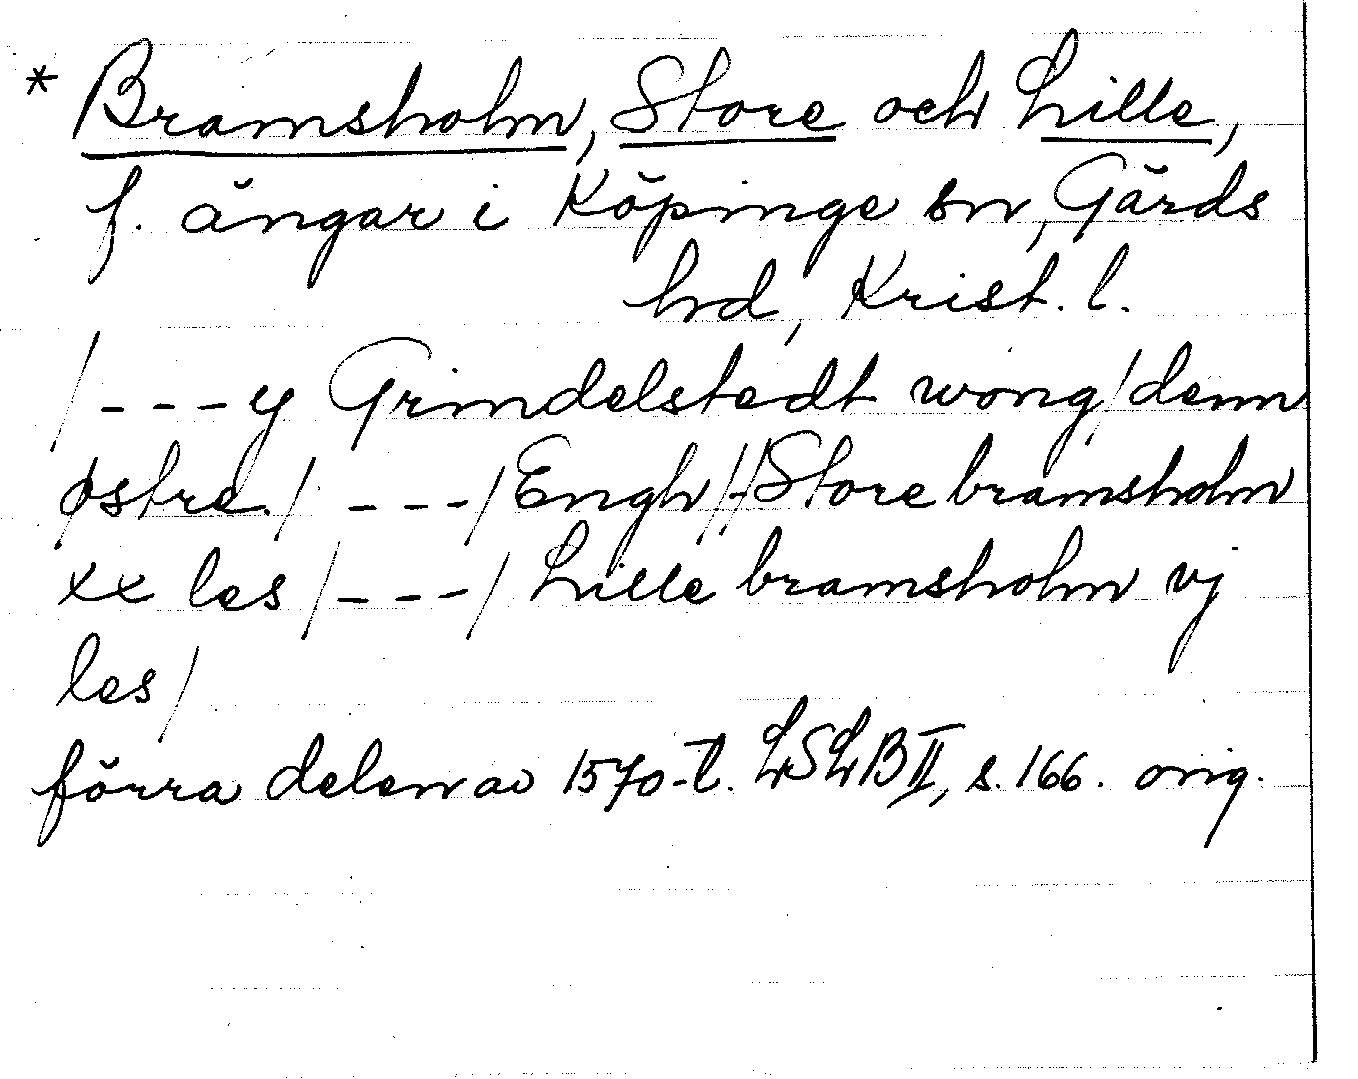 * Bramsholm, Store och Lille,
f. ängar i Köpinge sn, Gärds
hrd, Krist. l.
/---y Grindelstedt wong/denn
østre/ ---/Engh/-/Store bramsholm
xx les/---/Lille bramsholm vj
les/
förra delen av 1570-t. LSLB II, s. 166. orig.